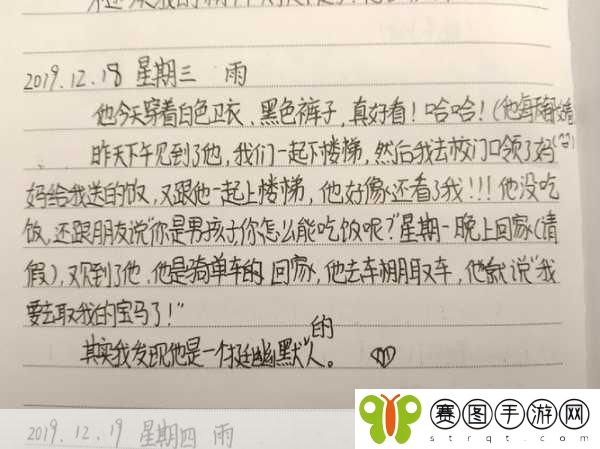 2019.12.18 星期三 雨
他今天穿着白色卫衣、黑色裤子,真好看!哈哈!(他每天都好看
昨天下午见到了他,我们一起下楼梯,然后我去校门口领了妈
妈给我送的饭,又跟他一起上楼梯,他好像还看了我!!!他没吃
饭,还跟朋友说"你是男孩子,你怎么能吃饭呢?"星期一晚上回家(请
假),又见到了他,他是骑单车的回家,他去车棚取车,他就说"我
要去取我的宝马了!"
其实我发现他是一个挺幽默的人。
2019.12.19 星期四 雨
赛图手游网
strqt.com